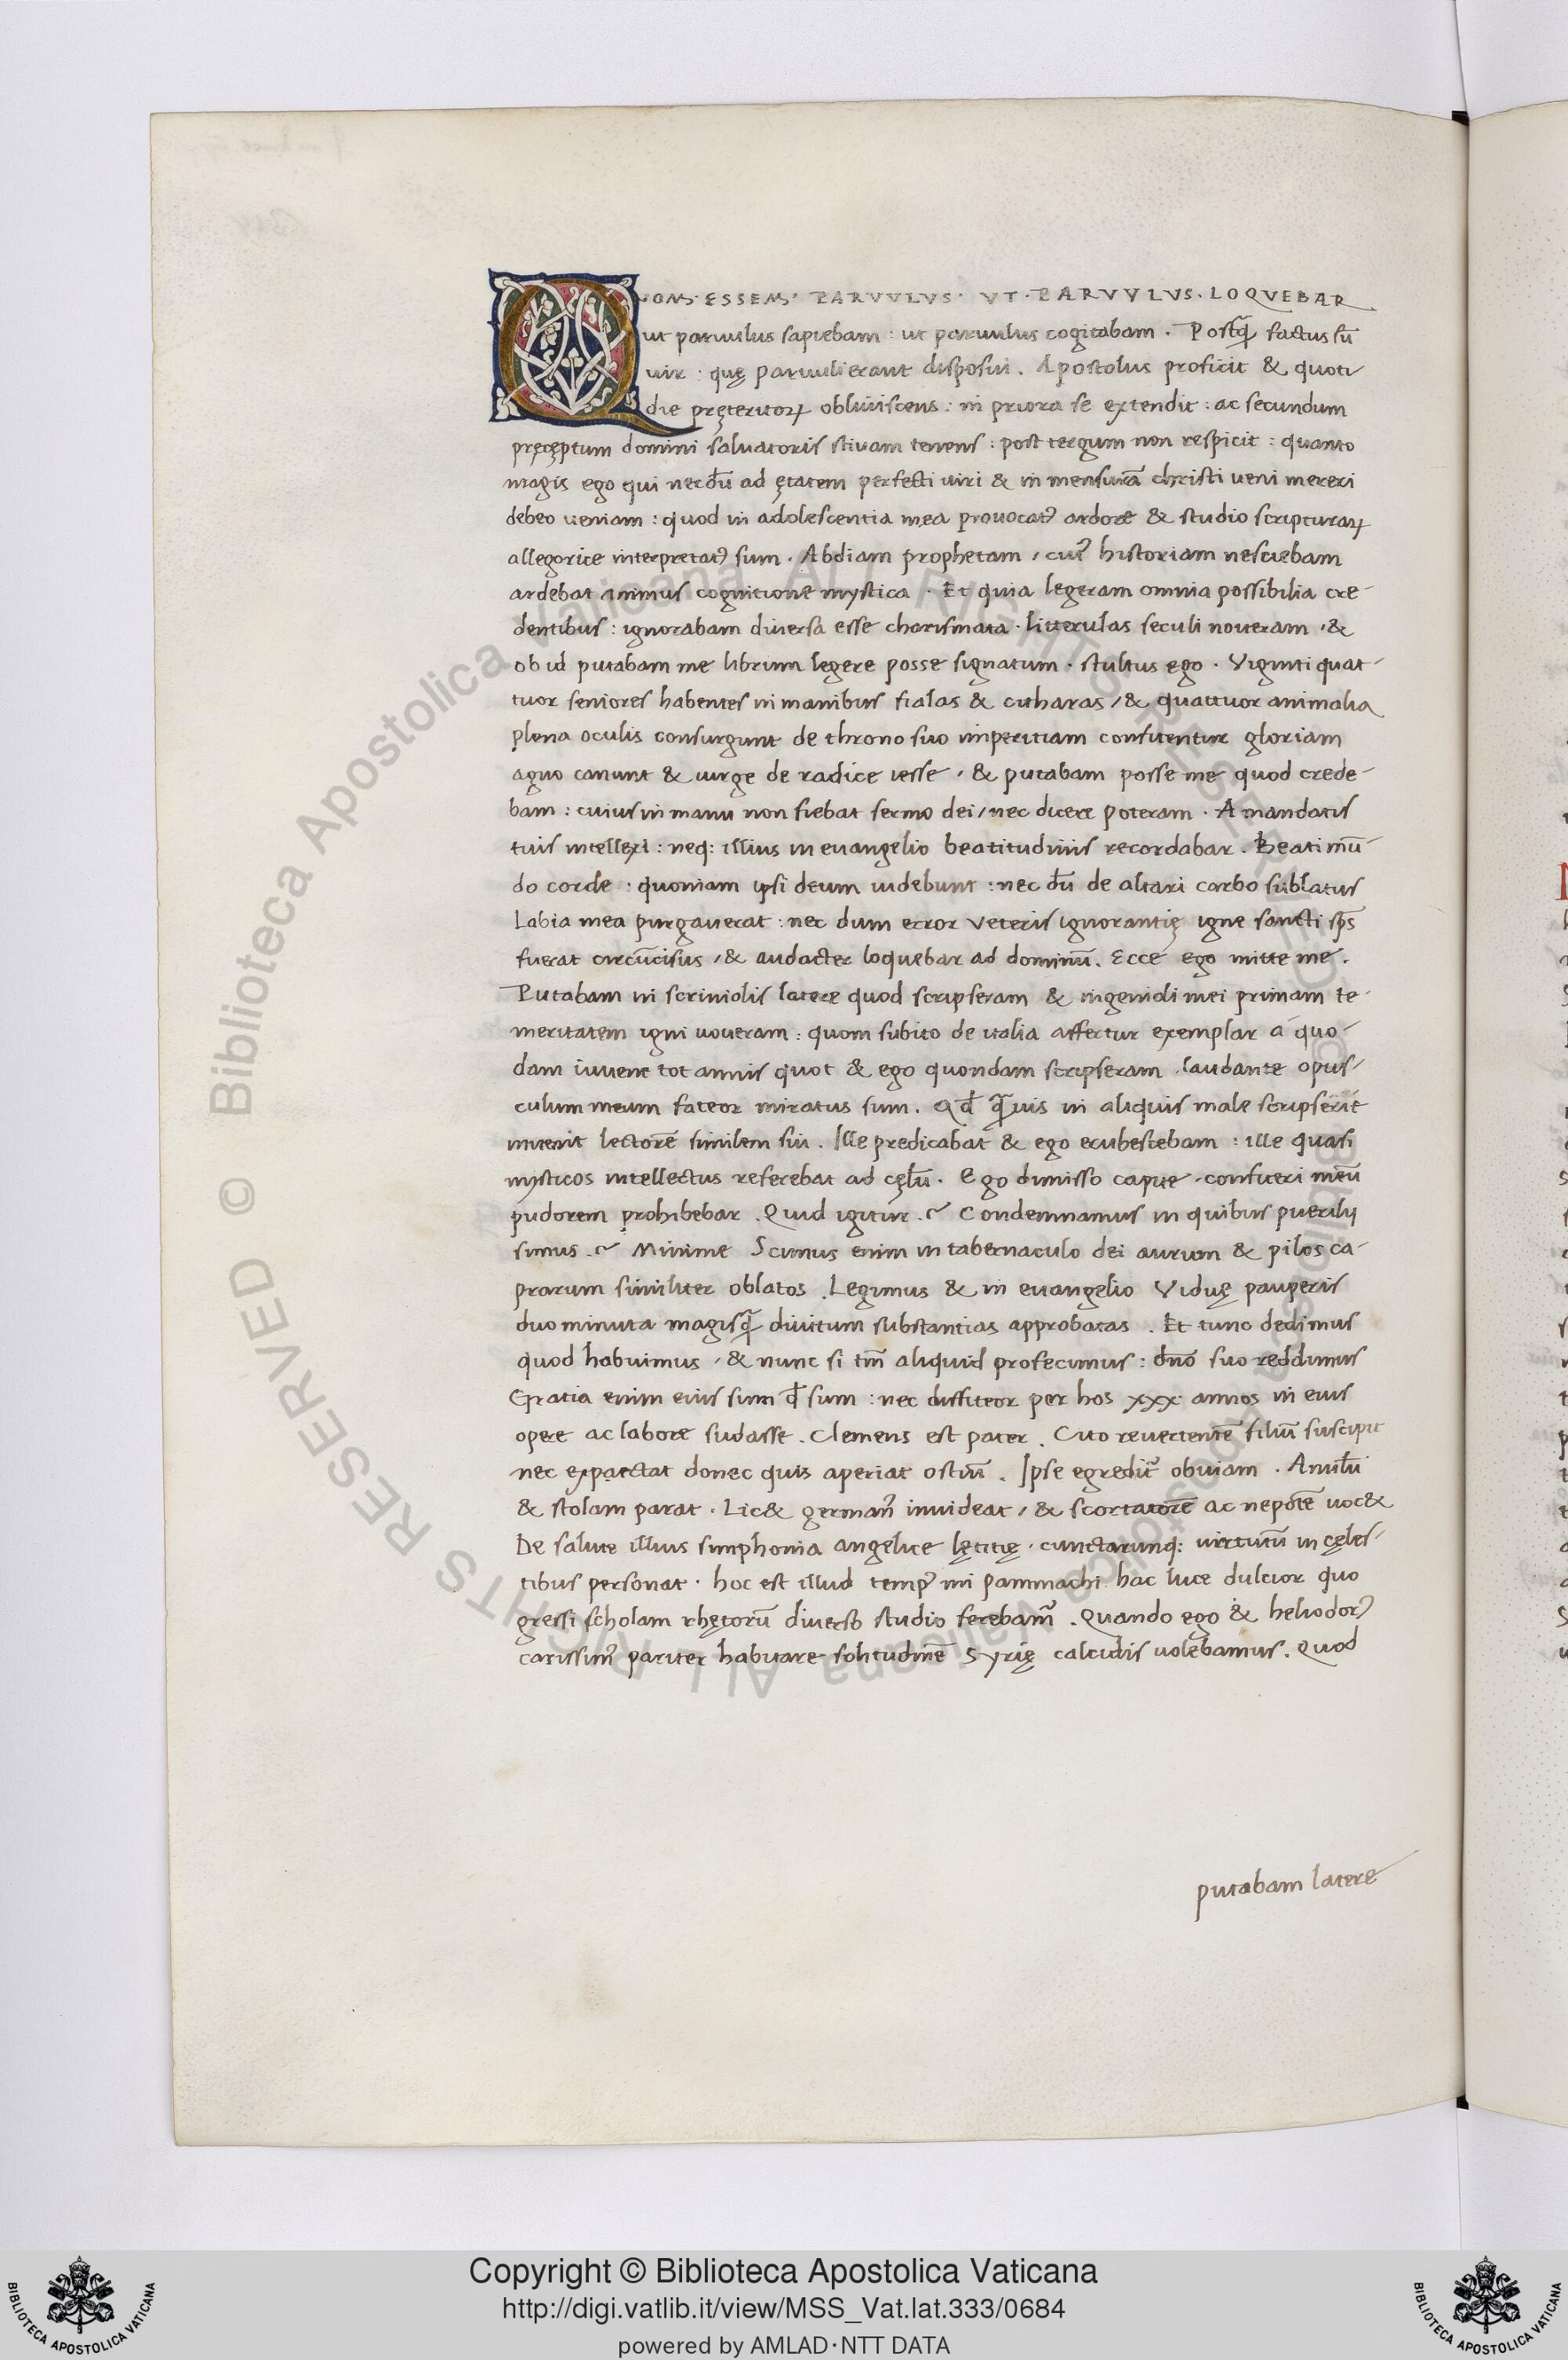 QVOM·ESSEM· PARVVLVS· VT·PARVVLVS·LOQVEBAR
ut paruulus sapiebam : ut paruulus cogitabam . Postq̃ factus sū
uir : quę paruuli erant disposui . Apostolus proficit & quoti
die pręteritoꝝ obliuiscens : in priora se extendit : ac secundum
pręcęptum domini saluatoris stiuam tenens : post tergum non respicit : quanto
magis ego qui necdū ad ętatem perfecti uiri & in mensurā christi ueni mereri
debeo ueniam : quod in adolescentia mea prouocatꝰ ardore & studio scripturaꝝ
allegorice interpretatꝰ sum . Abdiam prophetam / cuiꝰ historiam nesciebam
ardebat animus cognitione mystica . Et quia legeram omnia possibilia cre-
dentibus : ignorabam diuersa esse charismata . litterulas seculi noueram . &
ob id putabam me librum legere posse signatum . stultus ego . Viginti quat-
tuor seniores habentes in manibus fialas & citharas / & quattuor animalia
plena oculis consurgunt de throno suo imperitiam confitentur gloriam
agno canunt & uirge de radice iesse / & putabam posse me quod crede-
bam : cuius in manu non fiebat sermo dei / nec dicere poteram . A mandatis
tuis intellexi : neq: illius in euangelio beatitudinis recordabar . Beati mū-
do corde : quoniam ipsi deum uidebunt : nec dū de altari carbo sublatus
Labia mea purgauerat : nec dum error veteris ignorantię igne sancti sp̄s
fuerat circūcisus / & audacter loquebar ad dominū . Ecce ego mitte me .
Putabam in scriniolis latere quod scripseram & ingenidi mei primam te-
meritatem igni uoueram : quom subito de italia affertur exemplar a quo-
dam iuuene tot annis quot & ego quondam scripseram . laudante opus-
culum meum fateor miratus sum . Qđ q̃uis in aliquis male scripserit
inuenit lectorē similem sui . Ille predicabat & ego erubescebam : ille quasi
mysticos intellectus referebat ad cęlū . Ego dimisso capite . confiteri meū
pudorem prohibebar . Quid igitur . ~ Condemnamus in quibus puerilij
simus . ~ Minime Scimus enim in tabernaculo dei aurum & pilos ca-
prarum similiter oblatos . Legimus & in euangelio Viduę pauperis
duo minuta magisq̃ diuitum substantias approbatas . Et tunc dedimus
quod habuimus / & nunc si tm̄ aliquid profecimus : dn̄o suo reddimus
Gratia enim eius sum qđ sum : nec diffiteor per hos xxx annos in eius
opere ac labore sudasse . Clemens est pater . Cito reuertentē filiū suscipit
nec expectat donec quis aperiat ostiū . Ipse egreditᷣ obuiam . Anulū
& stolam parat . Lic& germanꝰ inuideat / & scortatorē ac nepotē uoc&
De salute illius simphonia angelice lętitię . cunctarunq: uirtutū in cęles-
tibus personat . hoc est illud tempꝰ mi pammachi hac luce dulcior quo
gressi scholam rhętorū diuerso studio ferebamꝰ . Quando ego & heliodorꝰ
carissimꝰ pariter habitare solitudinē Syrię calcidis uolebamus . Quod
putabam latere
© Biblioteca Apostolica Vaticana ALL RIGHTS RESERVED
Copyright © Biblioteca Apostolica Vaticana
http://digi.vatlib.it/view/MSS_Vat.lat.333/0684
powered by AMLAD·NTT DATA
BIBLIOTECA APOSTOLICA VATICANA
BIBLIOTECA APOSTOLICA VATICANA